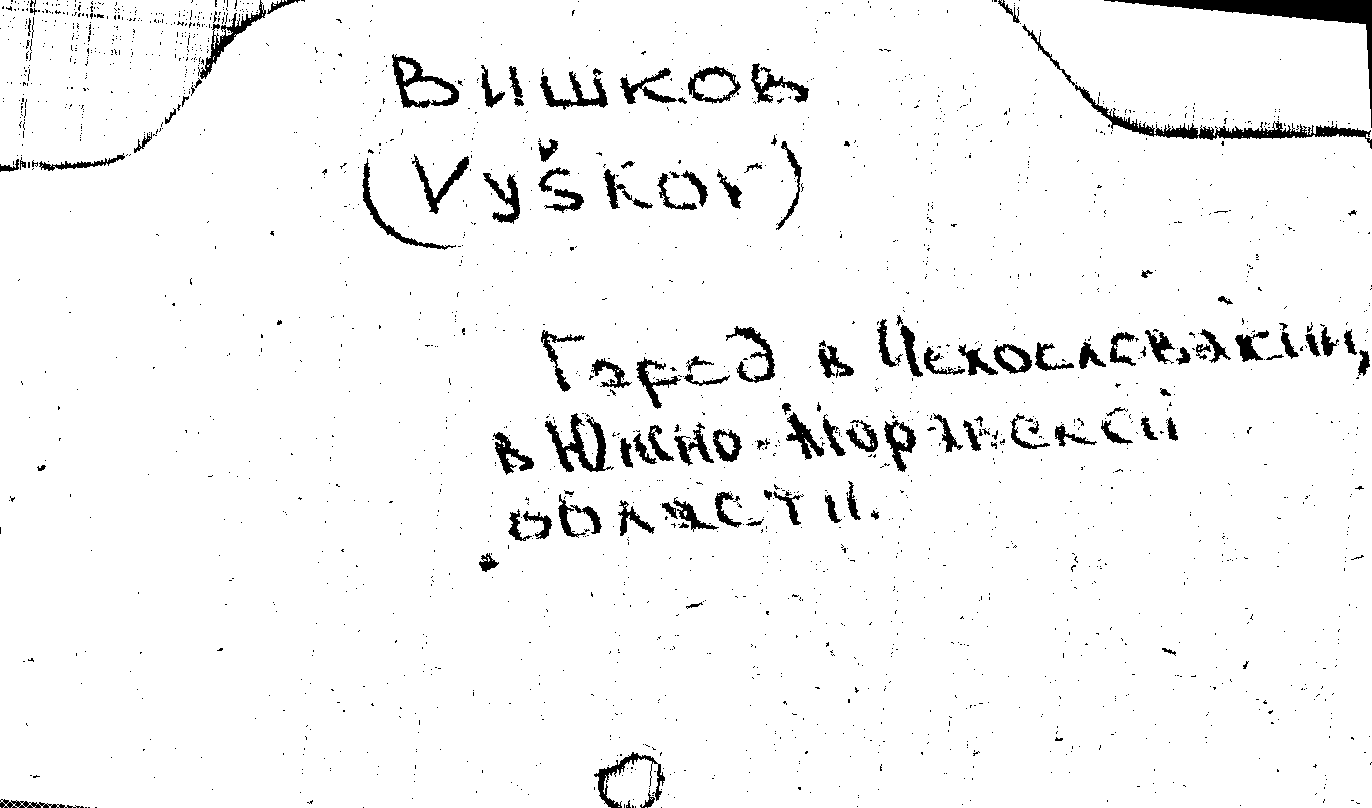 Вишков
(Vyškov)
Город в Чехословакии,
в Южно-Моравской
области.